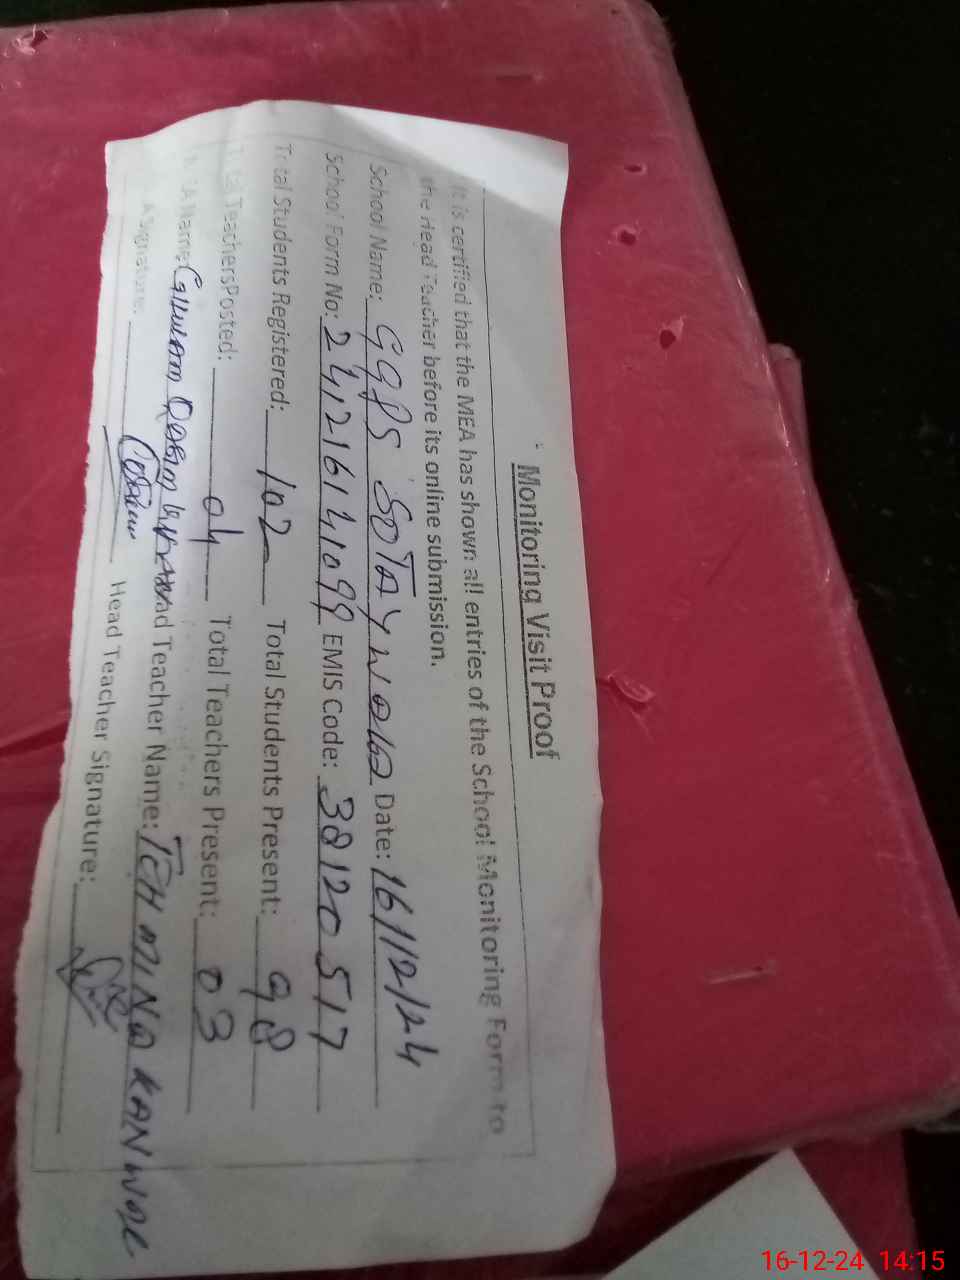 Monitoring Visit Proof
It is certified that the MEA has shown all entries of the School Monitoring Form to
the Head Teacher before its online submission.
School Name: GGPS SOTAY WALA Date: 16/12/24
School Form No: EMIS Code: 38120517
Total Students Registered: 102 Total Students Present: 98
Total Teachers Posted: 04 Total Teachers Present: 03
Name: GHULAM Head Teacher Name: TEHMINA KANWAL
A Signature: Head Teacher Signature:
16-12-24 14:15